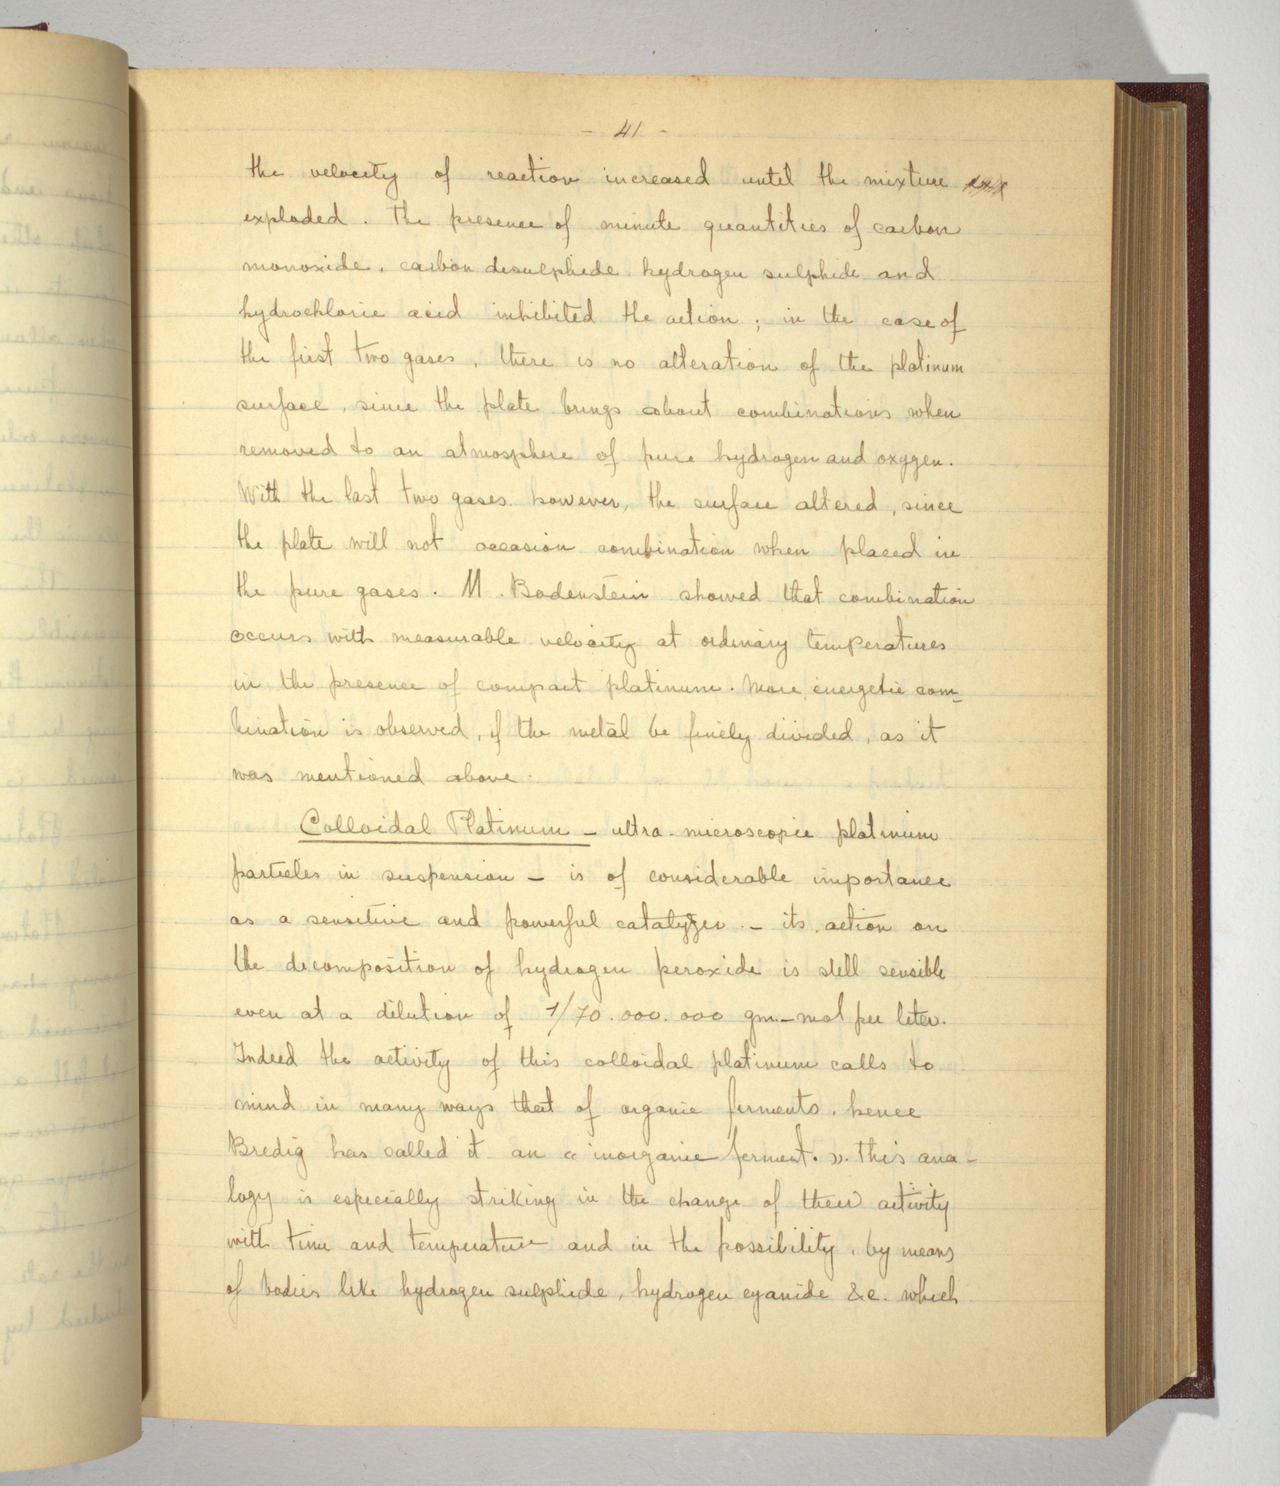 - 41 -
the velocity of reaction increased until the mixture
exploded. The presence of minute quantities of carbon
monoxide, carbon disulphide hydrogen sulphide and
hydrochloric acid inhibited the action ; in the case of
the first two gases, there is no alteration of the platinum
surface, since the plate brings about combinations when
removed to an atmosphere of pure hydrogen and oxygen.
With the last two gases however, the surface altered, since
the plate will not occasion combination when placed in
the pure gases. M. Bodenstein showed that combination
occurs with measurable velocity at ordinary temperatures
in the presence of compact platinum. More energetic com-
bination is observed, if the metal be finely divided, as it
was mentioned above.
Colloidal Platinum - ultra-microscopic platinum
particles in suspension - is of considerable importance
as a sensitive and powerful catalyzer. - its action on
the decomposition of hydrogen peroxide is still sensible
even at a dilution of 1/70.000.000 gm.-mol per liter.
Indeed the activity of this colloidal platinum calls to
mind in many ways that of organic ferments, hence
Bredig has called it an « inorganic ferment. ». This ana-
logy is especially striking in the change of their activity
with time and temperature and in the possibility, by means
of bodies like hydrogen sulphide, hydrogen cyanide &c. which